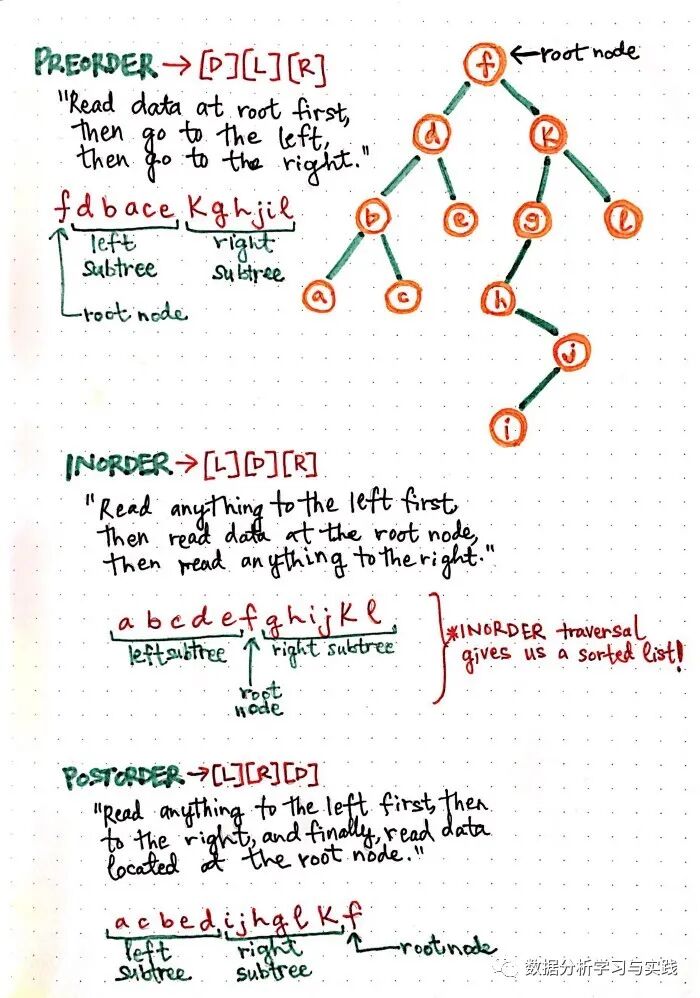 PREORDER → [D][L][R]
"Read data at root first,
then go to the left,
then go to the right."
f d b a c e K g h j i l
left subtree
right subtree
root node
← root node
f
d
K
b
e
g
l
a
c
h
j
i
INORDER → [L][D][R]
"Read anything to the left first,
then read data at the root node,
then read anything to the right."
a b c d e f g h i j K l
left subtree
right subtree
root node
*INORDER traversal
gives us a sorted list!
POSTORDER → [L][R][D]
"Read anything to the left first, then
to the right, and finally, read data
located at the root node."
a c b e d i j h g l K f
left subtree
right subtree
root node
数据分析学习与实践